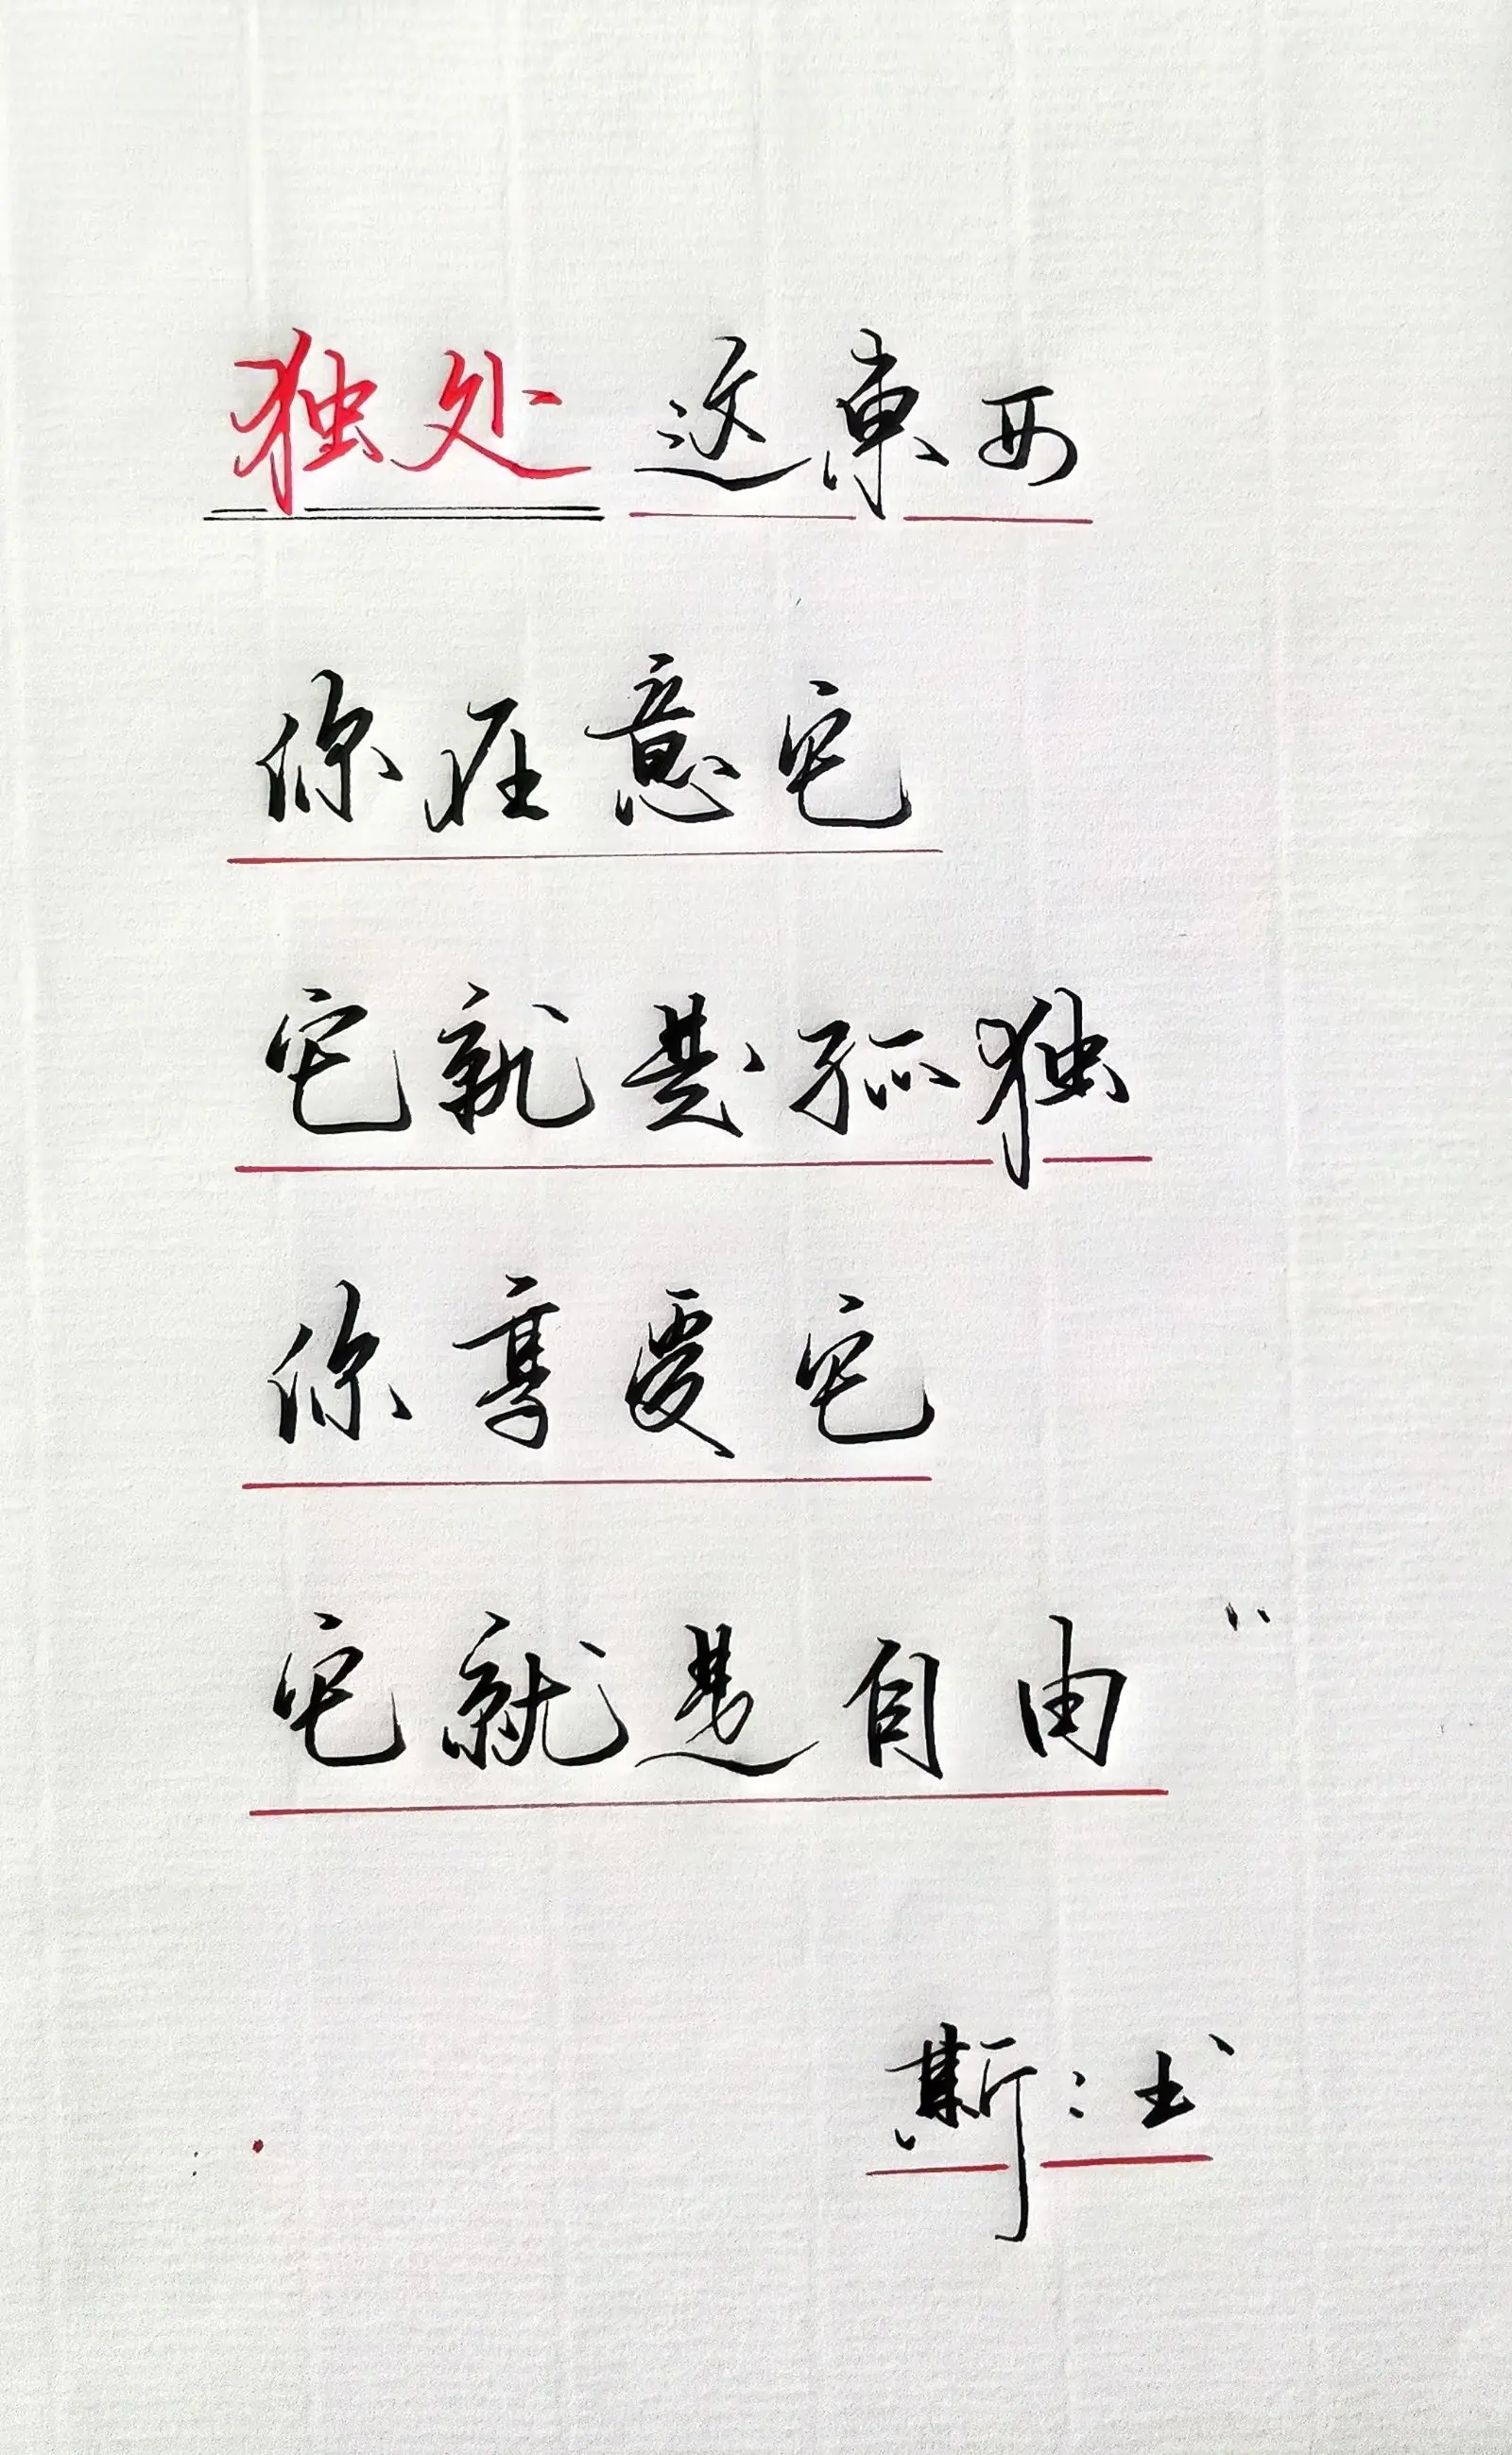 独处这東西
你在意它
它就是孤独
你享受它
它就是自由”
斯:书